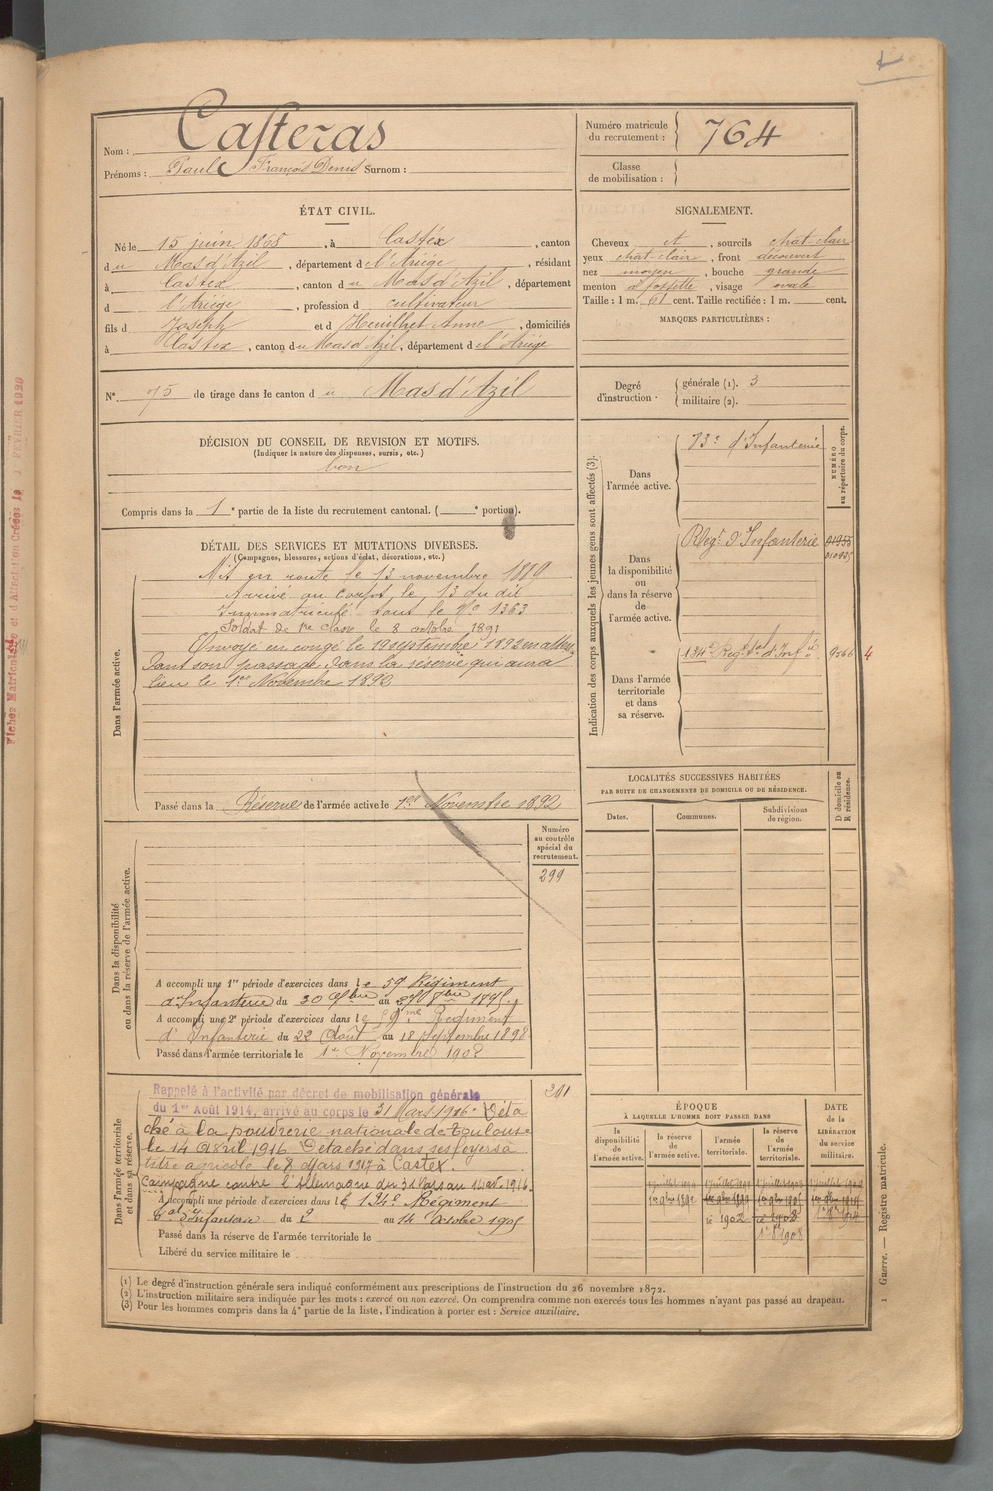 Nom : Casteras
Prénoms : Paul François Denis Surnom :
Numéro matricule du recrutement : 764
Classe de mobilisation :
ÉTAT CIVIL.
Né le 15 juin 1868, à Castéx, canton
du Mas d'Azil, département de l'Ariège, résidant
à Castex, canton du Mas d'Azil, département
d l'Ariège, profession d cultivateur
fils d Joseph et d Heuilhet Anne, domiciliés
à Castex, canton du Mas d'Azil, département de l'Ariège
N° 75 de tirage dans le canton du Mas d'Azil
SIGNALEMENT.
Cheveux et, sourcils chat-clair
yeux chat-clair, front découvert
nez moyen, bouche grande
menton à fossette, visage ovale
Taille : 1 m. 61 cent. Taille rectifiée : 1 m. cent.
MARQUES PARTICULIÈRES :
Degré d'instruction.
générale (1). 3
militaire (2).
DÉCISION DU CONSEIL DE REVISION ET MOTIFS.
(Indiquer la nature des dispenses, sursis, etc.)
bon
Compris dans la 1e partie de la liste du recrutement cantonal. ( e portion).
DÉTAIL DES SERVICES ET MUTATIONS DIVERSES.
(Campagnes, blessures, actions d'éclat, décorations, etc.)
Dans l'armée active.
Mis en route le 13 novembre 1889
Arrivé au corps, le 13 du dit
Immatriculé sous le N° 1363
Soldat de 1re classe le 8 octobre 1891
Envoyé en congé le 19 septembre 1892 en atten
dant son passage dans la réserve qui aura
lieu le 1er Novembre 1892
Passé dans la Réserve de l'armée active le 1er Novembre 1892
Indication des corps auxquels les jeunes gens sont affectés (3).
NUMÉRO au répertoire du corps.
Dans l'armée active.
d'Infanterie
Dans la disponibilité ou dans la réserve de l'armée active.
Regt d'Infanterie
Dans l'armée territoriale et dans sa réserve.
134e Regt Tal d'Inf ie
4
LOCALITÉS SUCCESSIVES HABITÉES
PAR SUITE DE CHANGEMENTS DE DOMICILE OU DE RÉSIDENCE.
Dates.
Communes.
Subdivisions de région.
D domicile ou R résidence.
Dans la disponibilité ou dans la réserve de l'armée active.
Numéro au contrôle spécial du recrutement.
299
A accompli une 1re période d'exercices dans le 59e Régiment
d'Infanterie du 30 au
A accompli une 2e période d'exercices dans le 59me Régiment
d'Infanterie du 22 Août au 18 Septembre 1898
Passé dans l'armée territoriale le 1er Novembre 1902
Dans l'armée territoriale et dans sa réserve.
Rappelé à l'activité par décret de mobilisation générale
du 1er Août 1914, arrivé au corps le 31 Mars 1916. Déta
ché à la poudrerie nationale de Toulouse
le 14 Avril 1916. Détaché dans ses foyers à
titre agricole le 8 Mars 1917 à Castex.
Campagne contre l'Allemagne du 31 Mars au 14 avr. 1916.
A accompli une période d'exercices dans le 134e Régiment
tal d'Infanterie du 2 au 14 Octobre 1905
Passé dans la réserve de l'armée territoriale le
Libéré du service militaire le
ÉPOQUE
À LAQUELLE L'HOMME DOIT PASSER DANS
la disponibilité de l'armée active.
la réserve de l'armée active.
l'armée territoriale.
la réserve de l'armée territoriale.
DATE de la LIBÉRATION du service militaire.
(1) Le degré d'instruction générale sera indiqué conformément aux prescriptions de l'instruction du 26 novembre 1872.
(2) L'instruction militaire sera indiquée par les mots : exercé ou non exercé. On comprendra comme non exercés tous les hommes n'ayant pas passé au drapeau.
(3) Pour les hommes compris dans la 4e partie de la liste, l'indication à porter est : Service auxiliaire.
1 Guerre. — Registre matricule.